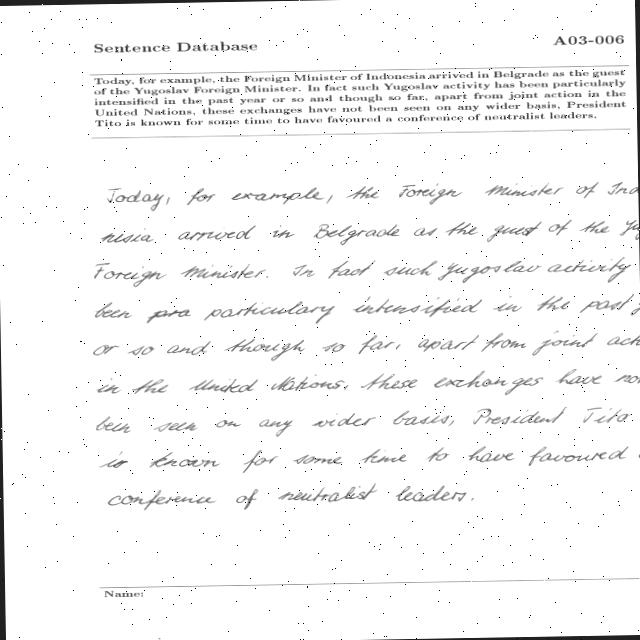 Sentence Database
A03-006
Today, for example, the Foreign Minister of Indonesia arrived in Belgrade as the guest
of the Yugoslav Foreign Minister. In fact such Yugoslav activity has been particularly
intensified in the past year or so and though so far, apart from joint action in the
United Nations, these exchanges have not been seen on any wider basis, President
Tito is known for some time to have favoured a conference of neutralist leaders.
Today, for example, the Foreign Minister of
nisia arrived in Belgrade as the guest of the
Foreign Minister. In fact such Yugoslav activity
been pra particulary intensified in the past
or so and though so far, apart from joint
in the United Nations, these exchanges have
been seen on any wider basis, President Tito
is known for some time to have favoured
conference of neutralist leaders.
Name: